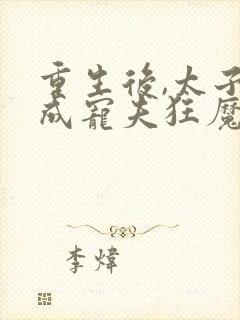 重生後,太子
成寵夫狂魔
李煒